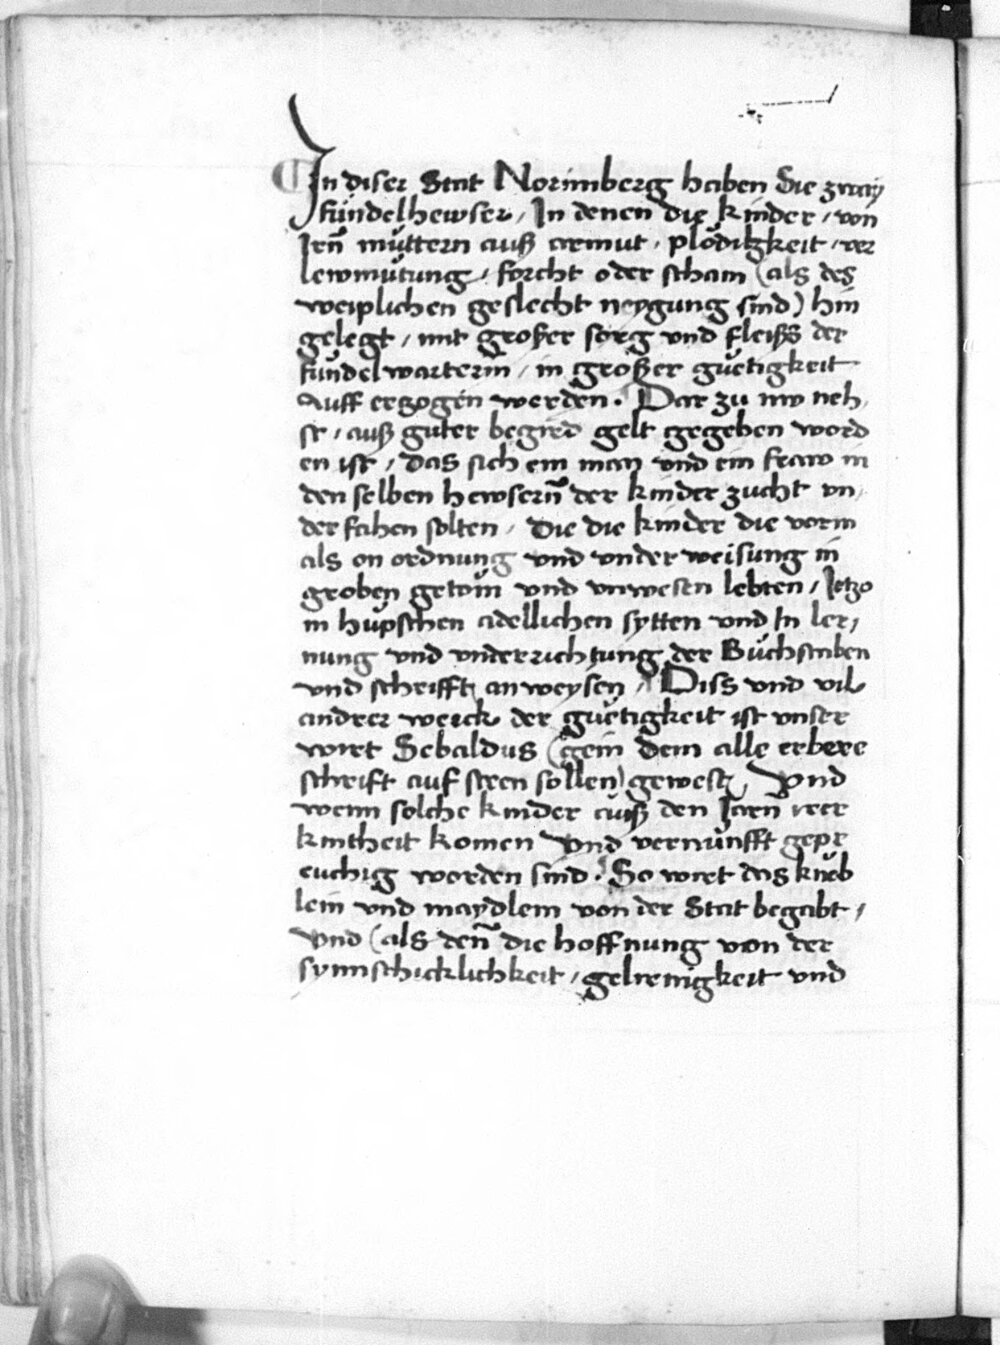 In diser Stat Norimberg haben Sie zway
fündelhewser, In denen die kinder, von
Irñ müttern auß armut, plödikgkeit, ver
lewmütung, forcht oder scham (als des
weiplichen geslecht neygung sind) hin
gelegt, mit großer sorg vnd fleißs der
fündelwarterin, in großer güetigkeit
Auff erzogen werden. Dar zu nw neh,
st, auß guter begird gelt gegeben word
en ist, das sich ein man vnd ein fraw in
den selben hewserñ der kinder zucht vn,
der fahen solten, Die die kinder die vorm
als on ordnung vnd vnder weisung in
groben getöm vnd vnwesen lebten, Jetzo
in hüpschen adellichen sytten vnd In ler,
nung vnd vnderrichtung der Büchstaben
vnd schrifft anweysen, Diss vnd vil
andrer werck der güetigkeit ist vnser
wirt Sebaldus (gein dem alle erbere
schrift auf steen sollen) gewest, Vnd
wenn solche kinder auß den Jarñ irer
kintheit komen Vnd vernünfft gepr
euchig worden sind. So wirt das knëb
lein vnd maydlein von der Stat begabt,
Vnd (als deñ die hoffnung von der
synnschicklichkeit, gelrenigkeit vnd